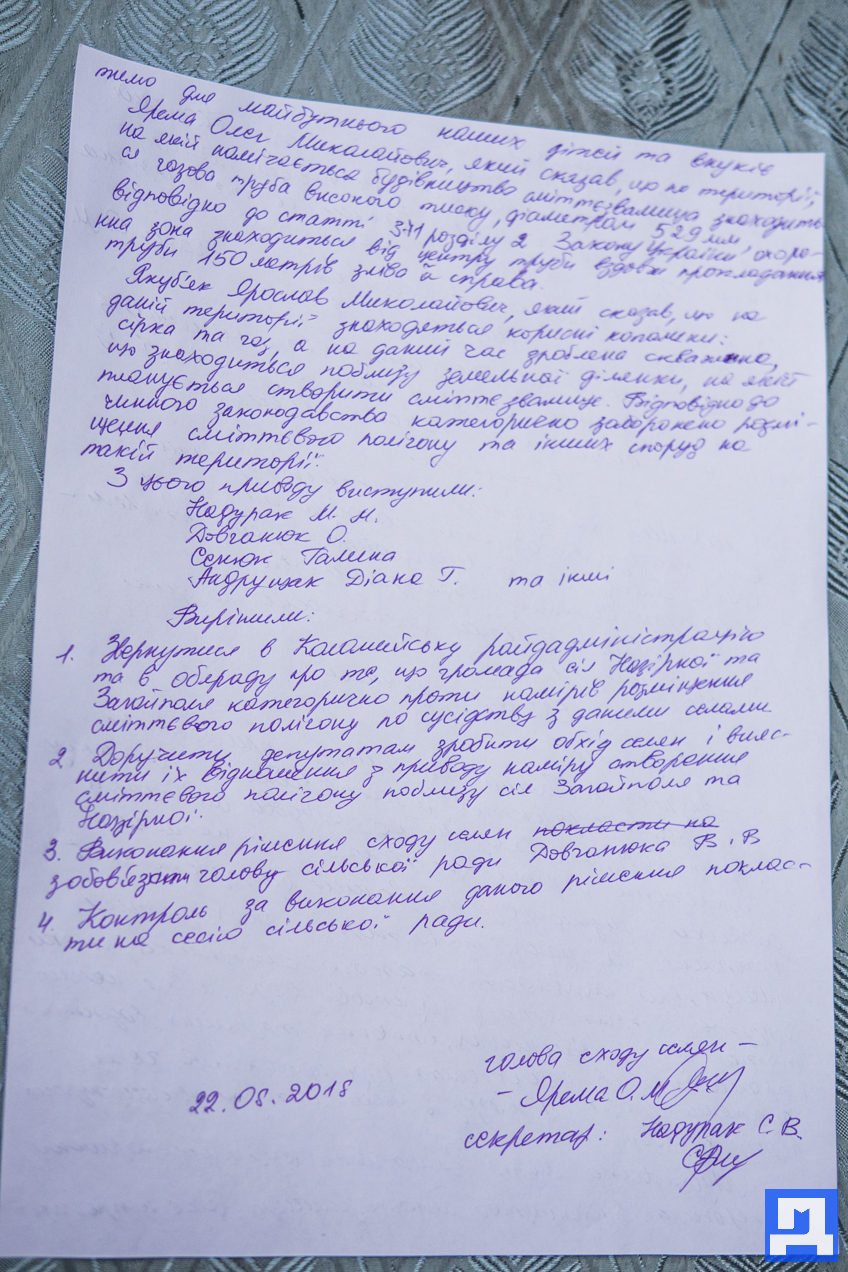 тимо для майбутнього наших дітей та внуків
Ярема Олег Миколайович, який сказав, що по території,
на якій намічається будівництво сміттєзвалища знаходить-
ся газова труба високого тиску, діаметром 529 мм
відповідно до статті розділу 2 Закону України охоро-
нна зона знаходиться від центру труби вздовж прокладання
труби 150 метрів зліва й справа.
Якуб'як Ярослав Миколайович, який сказав, що на
даній території знаходяться корисні копалени:
сірка та газ, а на даний час зроблена скважина,
що знаходиться поблизу земельної ділянки, на якій
планується створити сміттєзвалище. Відповідно до
чинного законодавства категорично заборонено розмі-
щення сміттєвого полігону та інших споруд на
такій території.
З цього приводу виступили:
Надурак М. М.
Довганюк О.
Сенюк Галина
Андрущак Діана Г. та інші
Вирішили:
1. Звернутися в Коломийську райдадміністрацію
та в облраду про те, що громада сіл Назірної та
Загайполя категорично проти намірів розміщення
сміттєвого полігону по сусідству з даними селами
2 Доручити депутатам зробити обхід селян і вияс-
нити їх відношення з приводу наміру створення
сміттєвого полігону поблизу сіл Загайполя та
Назірної.
3. Виконання рішення сходу селян покласти на
зобов'язати голову сільської ради Довганюка В. В
4. Контроль за виконання даного рішення поклас-
ти на сесію сільської ради.
голова сходу селян –
22.05.2018
– Ярема О. М
секретар: Надурак С. В.
Д